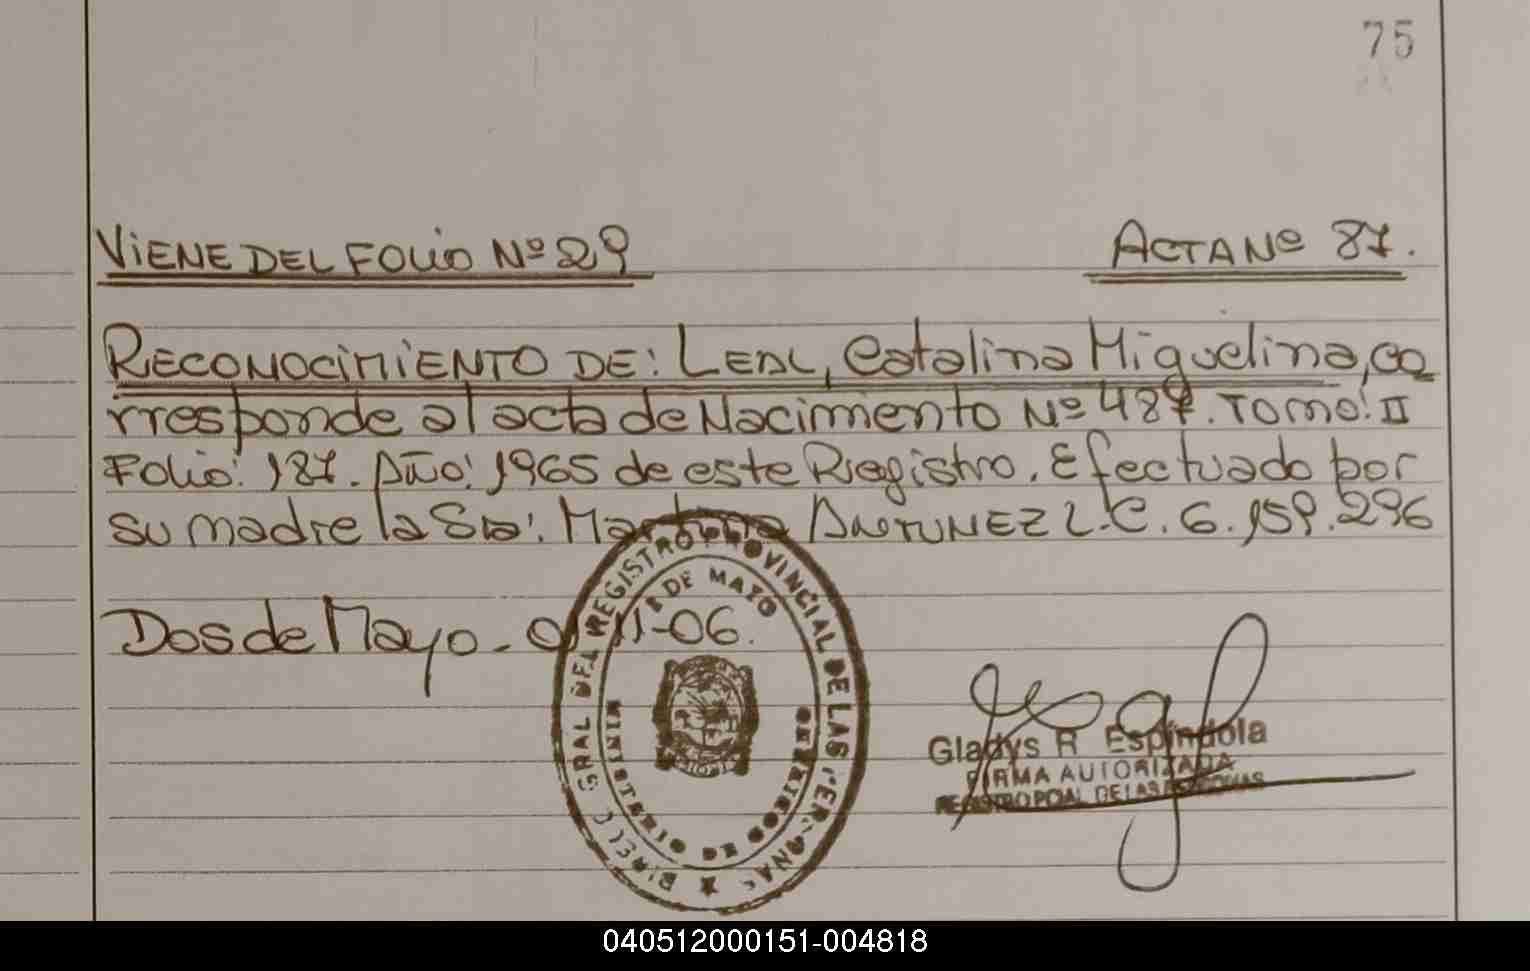 75
VIENE DEL FOLIO Nº 29
ACTA Nº 87.
RECONOCIMIENTO DE: LEAL, Catalina Miguelina, co
rresponde al acta de Nacimiento Nº 487. Tomo: II
Folio: 187. Año: 1965 de este Registro. Efectuado por
su madre la Sra: Martina ANTUNEZ L.C. 6.159.296
Dos de Mayo - 11-06.
DIREC GRAL DEL REGISTRO PROVINCIAL DE LAS PERSONAS
DE MAYO
MINISTERIO DE GOBIERNO
Gladys R Espíndola
FIRMA AUTORIZADA
REGISTRO PCIAL DE LAS PERSONAS
040512000151-004818